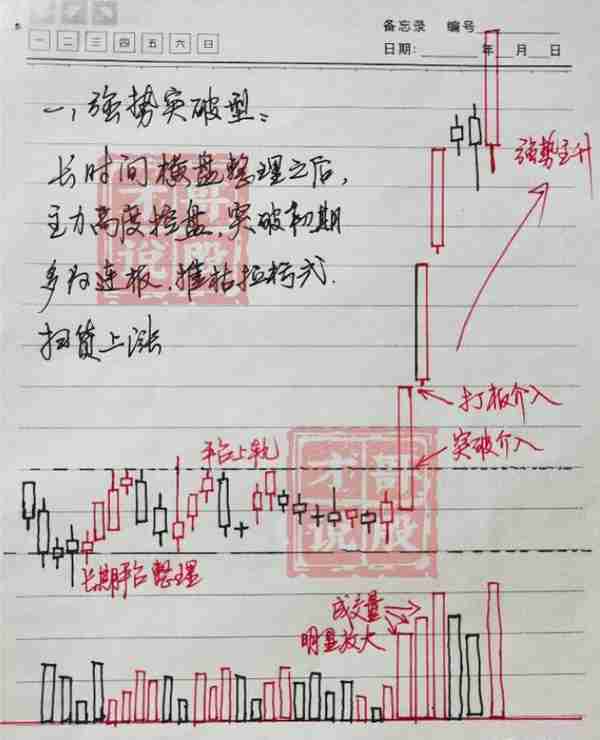 备忘录 编号
一 二 三 四 五 六 日
日期: 年 月 日
一,强势突破型:
长时间横盘整理之后,
主力高度控盘,突破初期
多为连板,摧枯拉朽式
扫货上涨
强势主升
打板介入
突破介入
平台上轨
长期平台整理
成交量
明显放大
才哥
说股
才哥
说股